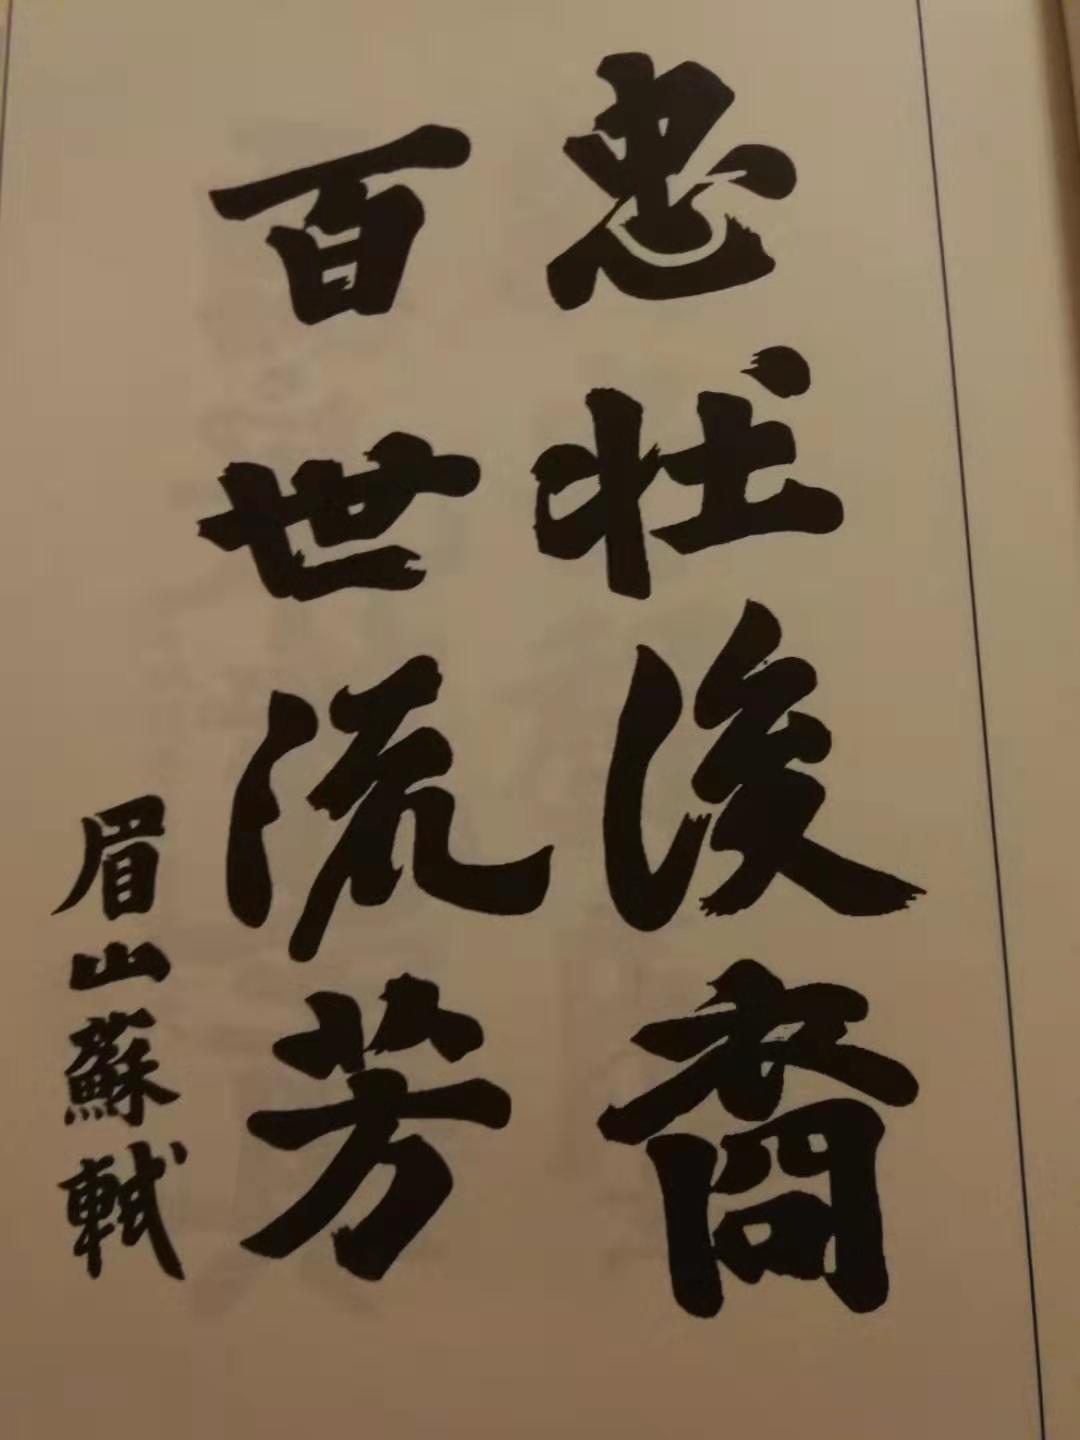 忠壯後裔
百世流芳
眉山蘇軾